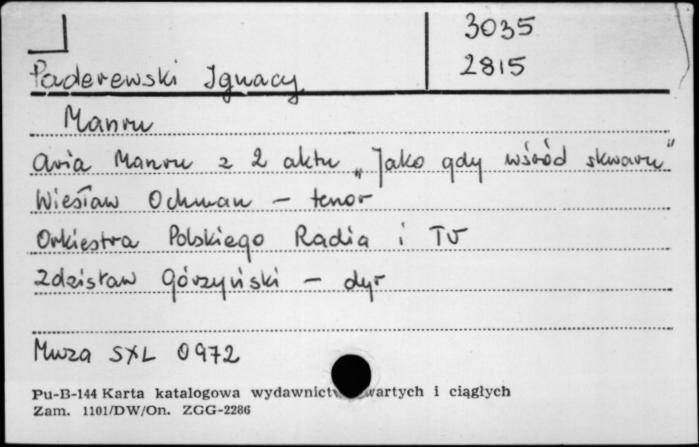 3035
2815
Paderewski Ignacy
Manru
aria Manru z 2 aktu „Jako gdy wśród skwaru"
Wiesław Ochman – tenor
Orkiestra Polskiego Radia i TV
Zdzisław Górzyński – dyr
Muza SXL 0972
Pu-B-144 Karta katalogowa wydawnictw zwartych i ciągłych
Zam. 1101/DW/On. ZGG-2286